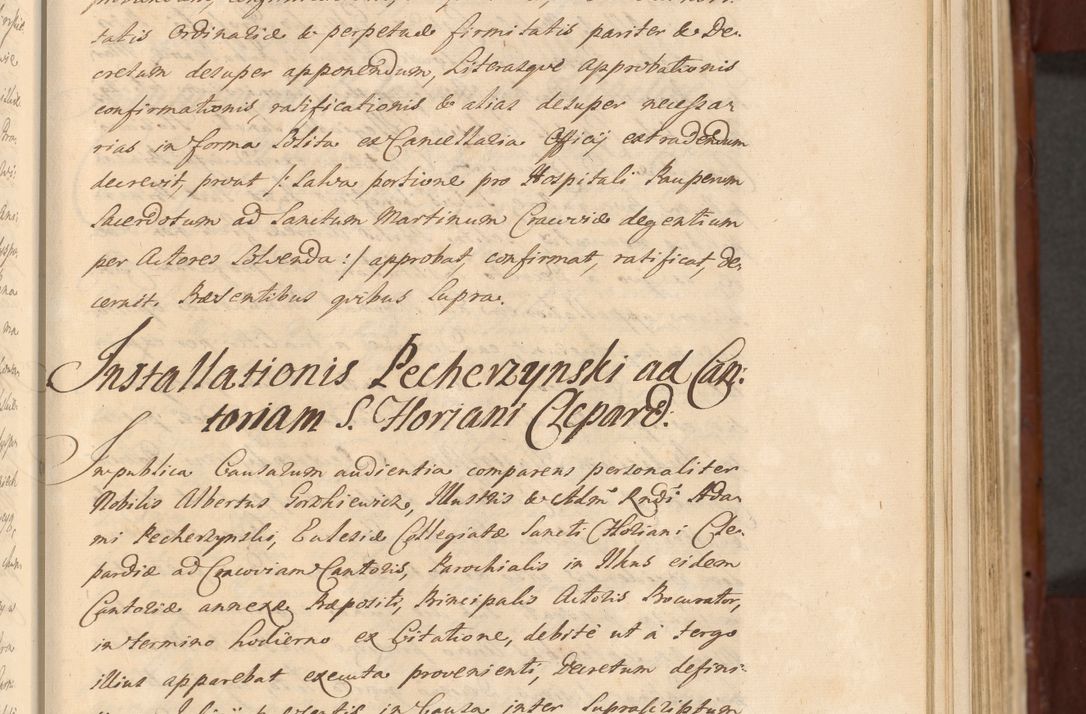 tatis Ordinariæ & perpetuæ firmitatis pariter & De-
cretum desuper apponendum, Literasque approbationis
confirmationis, ratificationis & alias desuper necessa-
rias in forma solita ex Cancellaria Officij extradendum
decrevit, prout /: salva portione pro Hospitali Pauperum
Sacerdotum ad Sanctum Martinum Cracoviæ degentium
per Actores solvenda :/ approbat, confirmat, ratificat, de-
cernit. Præsentibus quibus supra.
Installationis Pecherzynski ad Can:
toriam S. Floriani Clepard:
In publica Causarum audientia comparens personaliter
Nobilis Albertus Gorzkiewicz, Illustris & Adm. Rndi Ada-
mi Pecherzynski, Ecclesiæ Collegiatæ Sancti Floriani Cle-
pardiæ ad Cracoviam Cantoris, Parochialis in Ilkus eidem
Cantoriæ annexæ Præpositi, Principalis Actoris Procurator,
in termino hodierno ex Citatione, debitè ut à tergo
illius apparebat executa provenienti, Decretum defini-
in Causa inter suprascriptum